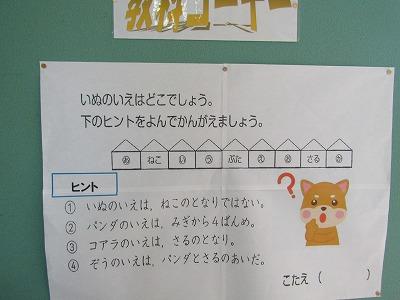 いぬのいえはどこでしょう。
下のヒントをよんでかんがえましょう。
あ ねこ い う ぶた え お さる か
ヒント
① いぬのいえは，ねこのとなりではない。
② パンダのいえは，みぎから4ばんめ。
③ コアラのいえは，さるのとなり。
④ ぞうのいえは，パンダとさるのあいだ。
こたえ （　　　）